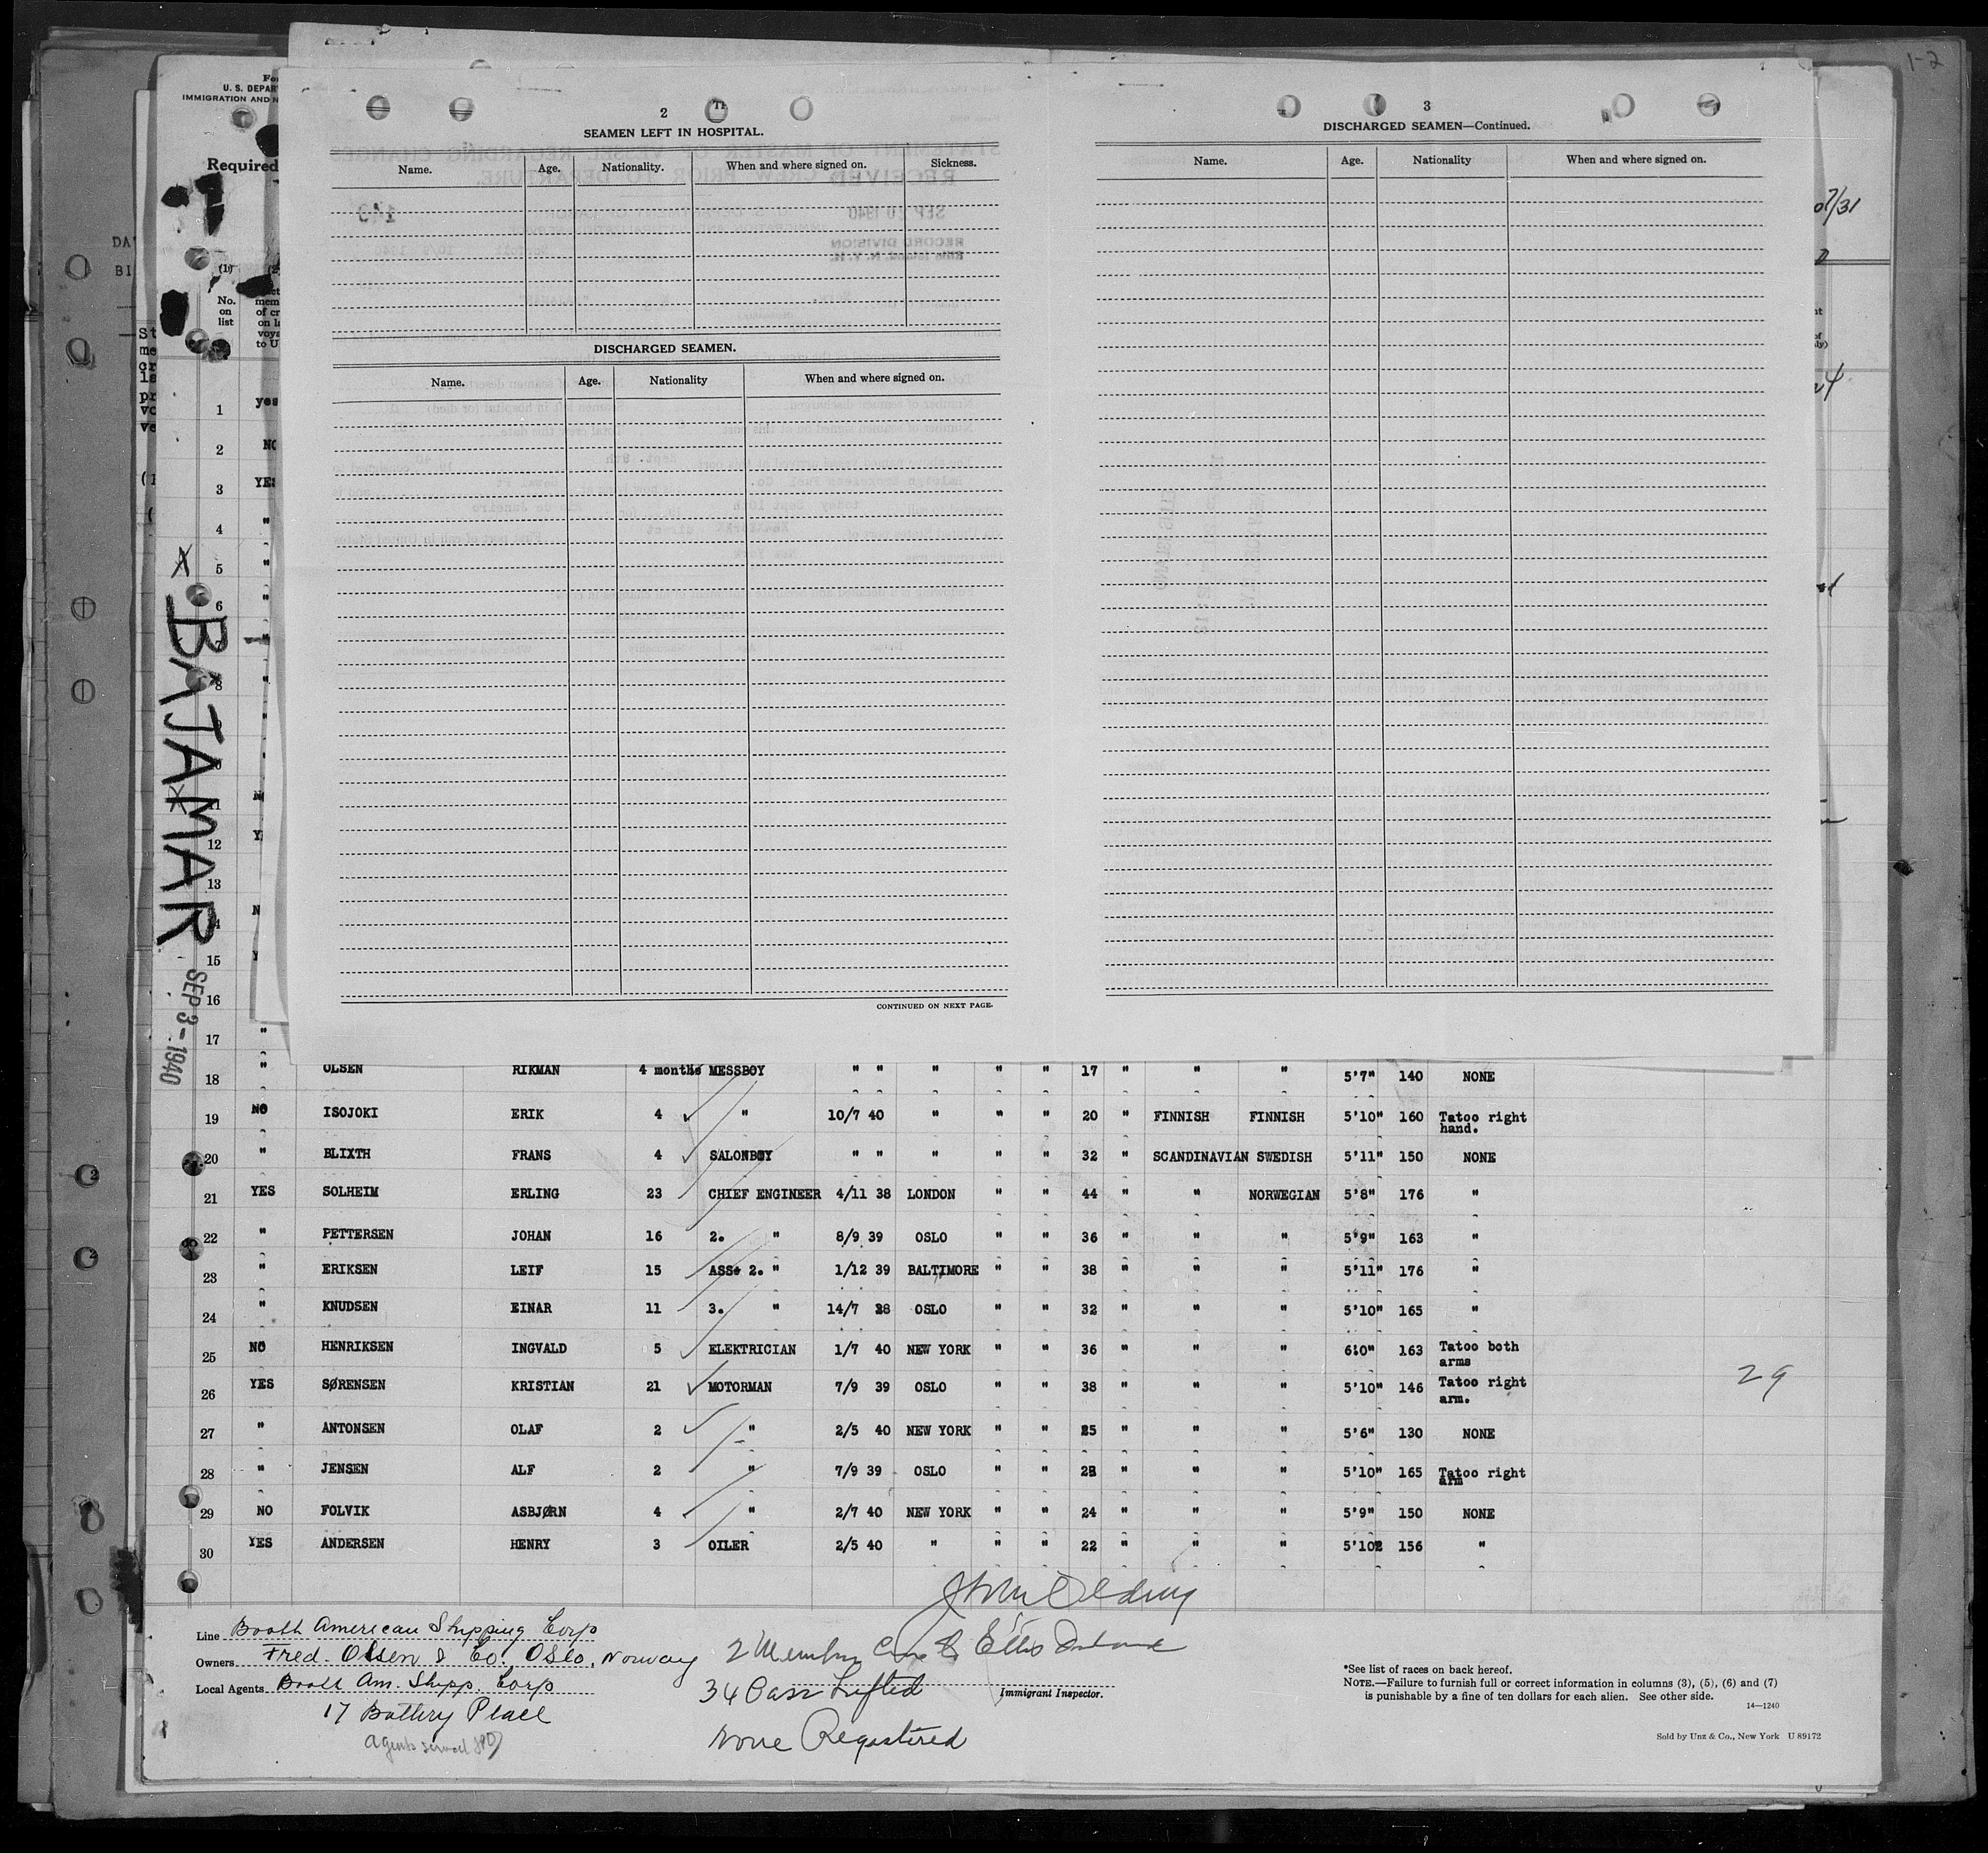 1-2
For
U. S. DEPAR
IMMIGRATION AND N
Required
DA
BI
(1)
No.
on
list
mem
of cr
on l
voya
to U
2
SEAMEN LEFT IN HOSPITAL.
Name. Age. Nationality. When and where signed on. Sickness.
DISCHARGED SEAMEN.
Name. Age. Nationality When and where signed on.
CONTINUED ON NEXT PAGE.
3
DISCHARGED SEAMEN—Continued.
Name. Age. Nationality When and where signed on.
1 yes
2 NO
3 YES
4 "
5 "
6 "
8 "
11
12 Y
13
14 N
15 Y
16
17 "
BAJAMAR
SEP 3-1940
18 " OLSEN RIKMAN 4 months MESSBOY " " " " " 17 " " " 5'7" 140 NONE
19 NO ISOJOKI ERIK 4 " 10/7 40 " " " 20 " FINNISH FINNISH 5'10" 160 Tatoo right hand.
20 " BLIXTH FRANS 4 SALONBOY " " " " " 32 " SCANDINAVIAN SWEDISH 5'11" 150 NONE
21 YES SOLHEIM ERLING 23 CHIEF ENGINEER 4/11 38 LONDON " " 44 " " NORWEGIAN 5'8" 176 "
22 " PETTERSEN JOHAN 16 2. " 8/9 39 OSLO " " 36 " " " 5'9" 163 "
23 " ERIKSEN LEIF 15 ASS. 2. " 1/12 39 BALTIMORE " " 38 " " " 5'11" 176 "
24 " KNUDSEN EINAR 11 3. " 14/7 38 OSLO " " 32 " " " 5'10" 165 "
25 NO HENRIKSEN INGVALD 5 ELEKTRICIAN 1/7 40 NEW YORK " " 36 " " " 6'0" 163 Tatoo both arms
26 YES SØRENSEN KRISTIAN 21 MOTORMAN 7/9 39 OSLO " " 38 " " " 5'10" 146 Tatoo right arm. 29
27 " ANTONSEN OLAF 2 " 2/5 40 NEW YORK " " 25 " " " 5'6" 130 NONE
28 " JENSEN ALF 2 " 7/9 39 OSLO " " 23 " " " 5'10" 165 Tatoo right arm
29 NO FOLVIK ASBJØRN 4 " 2/7 40 NEW YORK " " 24 " " " 5'9" 150 NONE
30 YES ANDERSEN HENRY 3 OILER 2/5 40 " " " 22 " " " 5'10 156 "
Line Booth American Shipping Corp
Owners Fred. Olsen & Co. Oslo, Norway
Local Agents Booth Am. Shipp. Corp
17 Battery Place
Agents served
2 Members Ellis Island
34 Pass Lifted
None Registered
Immigrant Inspector.
*See list of races on back hereof.
NOTE.—Failure to furnish full or correct information in columns (3), (5), (6) and (7)
is punishable by a fine of ten dollars for each alien. See other side.
14—1240
Sold by Unz & Co., New York U 89172